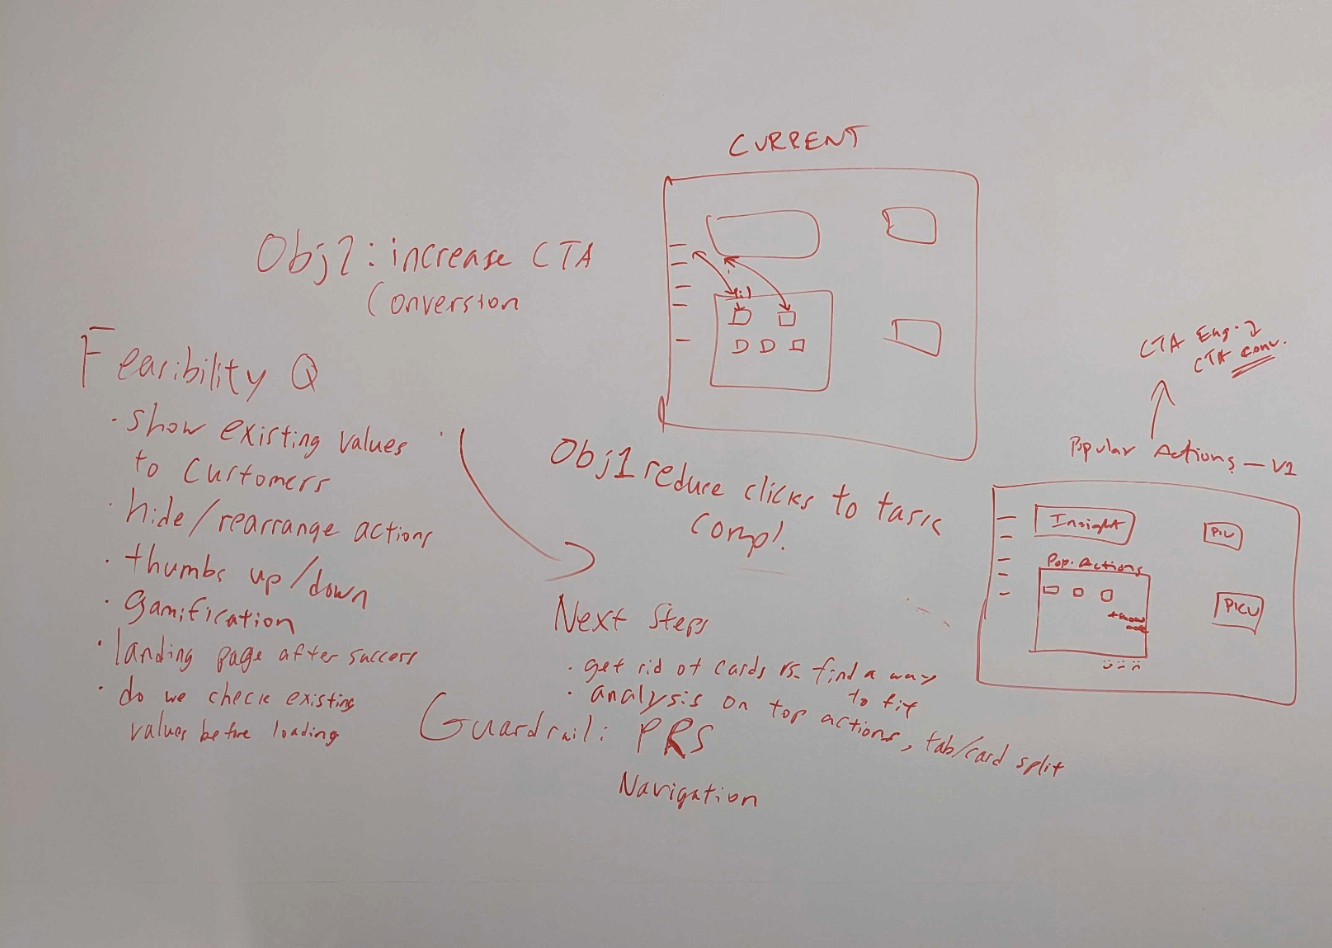 CURRENT
Obj2: increase CTA
Conversion
Feasibility Q
· show existing values
to customers
· hide/rearrange actions
· thumbs up/down
· gamification
· landing page after success
· do we check existing
values before loading
Obj1 reduce clicks to task
compl.
Next Steps
· get rid of cards vs. find a way
to fit
· analysis on top actions, tab/card split
Guardrail: PRS
Navigation
CTA Eng.
CTA conv.
Popular Actions — V1
Insight
Pop. Actions